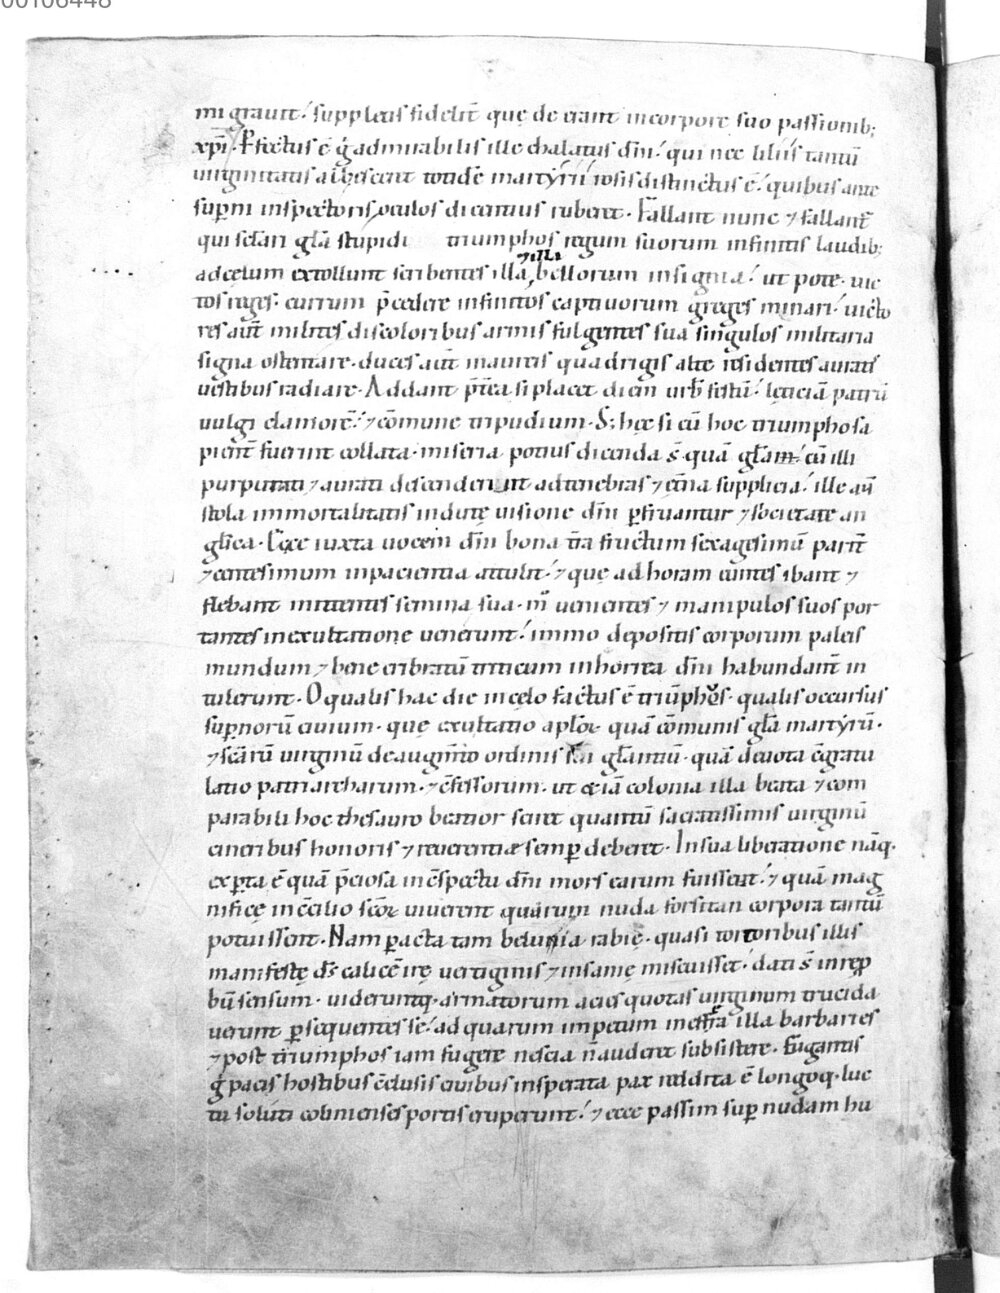 00106448
migrauit. suppletis fidelit̄ quę de erant in corpore suo passionib;
xp̄i. P̱fectus ē g̍ admirabilis ille thalamus dn̄i. qui nec liliis tantū
uirginitatis albesceret totidē martyrū rosis distinctus ē. quibus ante
sup̱ni inspectoris oculos dicentius ruberet. Fallant nunc ⁊ fallant̄
qui sc̄lari gl̄a stupidi triumphos regum suorum infinitis laudib;
ad cęlum extollunt scribentes illa ⁊ illa bellorum insignia. ut pote uic
tos reges. currum p̄cedere infinitos captiuorum greges minari. uicto
res aut̄ milites discoloribus armis fulgentes sua singulos militaria
signa ostentare. duces aut̄ maureis quadrigis alte residentes auratis
uestibus radiare. Addant p̄t̄ea si placet diem urb̄ festū. lęticiā patrū
uulgi clamorē. ⁊ cōmune tripudium. S; hęc si cū hoc triumpho sa
pient̄ fuerint collata. miseria potius dicenda s̄ quā gl̄a. cū illi
purpurati ⁊ aurati descenderunt ad tenebras ⁊ ęt̄na supplicia. ille aut̄
stola immortalitatis indutę uisione dn̄i p̱fruantur ⁊ societate an
gl̄ica. Ecce iuxta uocem dn̄i bona t̄ra fructum sexagesimū parit̄
⁊ centesimum in pacientia attulit. ⁊ quę ad horam euntes ibant ⁊
flebant mittentes semina sua. m̊ uenientes ⁊ manipulos suos por
tantes in exultatione uenerunt. immo depositis corporum paleis
mundum ⁊ bene cribratū triticum in horrea dn̄i habundant̄ in
tulerunt. O qualis hac die in cęlo factus ē triūphus. qualis occursus
sup̱norū ciuium. quę exultatio aplōꝝ. quā cōmunis gl̄a martyrū.
⁊ sc̄arū uirginū de augm̄to ordinis sui gl̄antiū. quā deuota c̄gratu
latio patriarcharum. ⁊ c̄fessorum. ut etiā colonia illa beata ⁊ com
parabili hoc thesauro beatior sciret quantū sacratissimis uirginū
cineribus honoris ⁊ reuerentiæ semp̱ deberet. In sua liberatione nāq.
exp̱ta ē quā p̄ciosa in c̄spectu dn̄i mors earum fuisset. ⁊ quā mag
nificę in c̄cilio sc̄oꝝ uiuerent quarum nuda forsitan corpora tantū
potuissent. Nam p̱acta tam beluina rabie. quasi tortoribus illis
manifestę ds̄ calicē irę uertiginis ⁊ insanię miscuisset. dati s̄ in rep̱
bū sensum. uideruntq. armatorum acies quotas uirginum trucida
uerunt p̱sequentes se. ad quarum impetum ineffrea illa barbaries
⁊ post triumphos iam fugere nescia n̄ auderet subsistere. Fugatis
g̍ pacis hostibus c̄clusis ciuibus insperata pax reddita ē longoq. luc
tu soluti colinienses portis eruperunt. ⁊ ecce passim sup̱ nudam hu